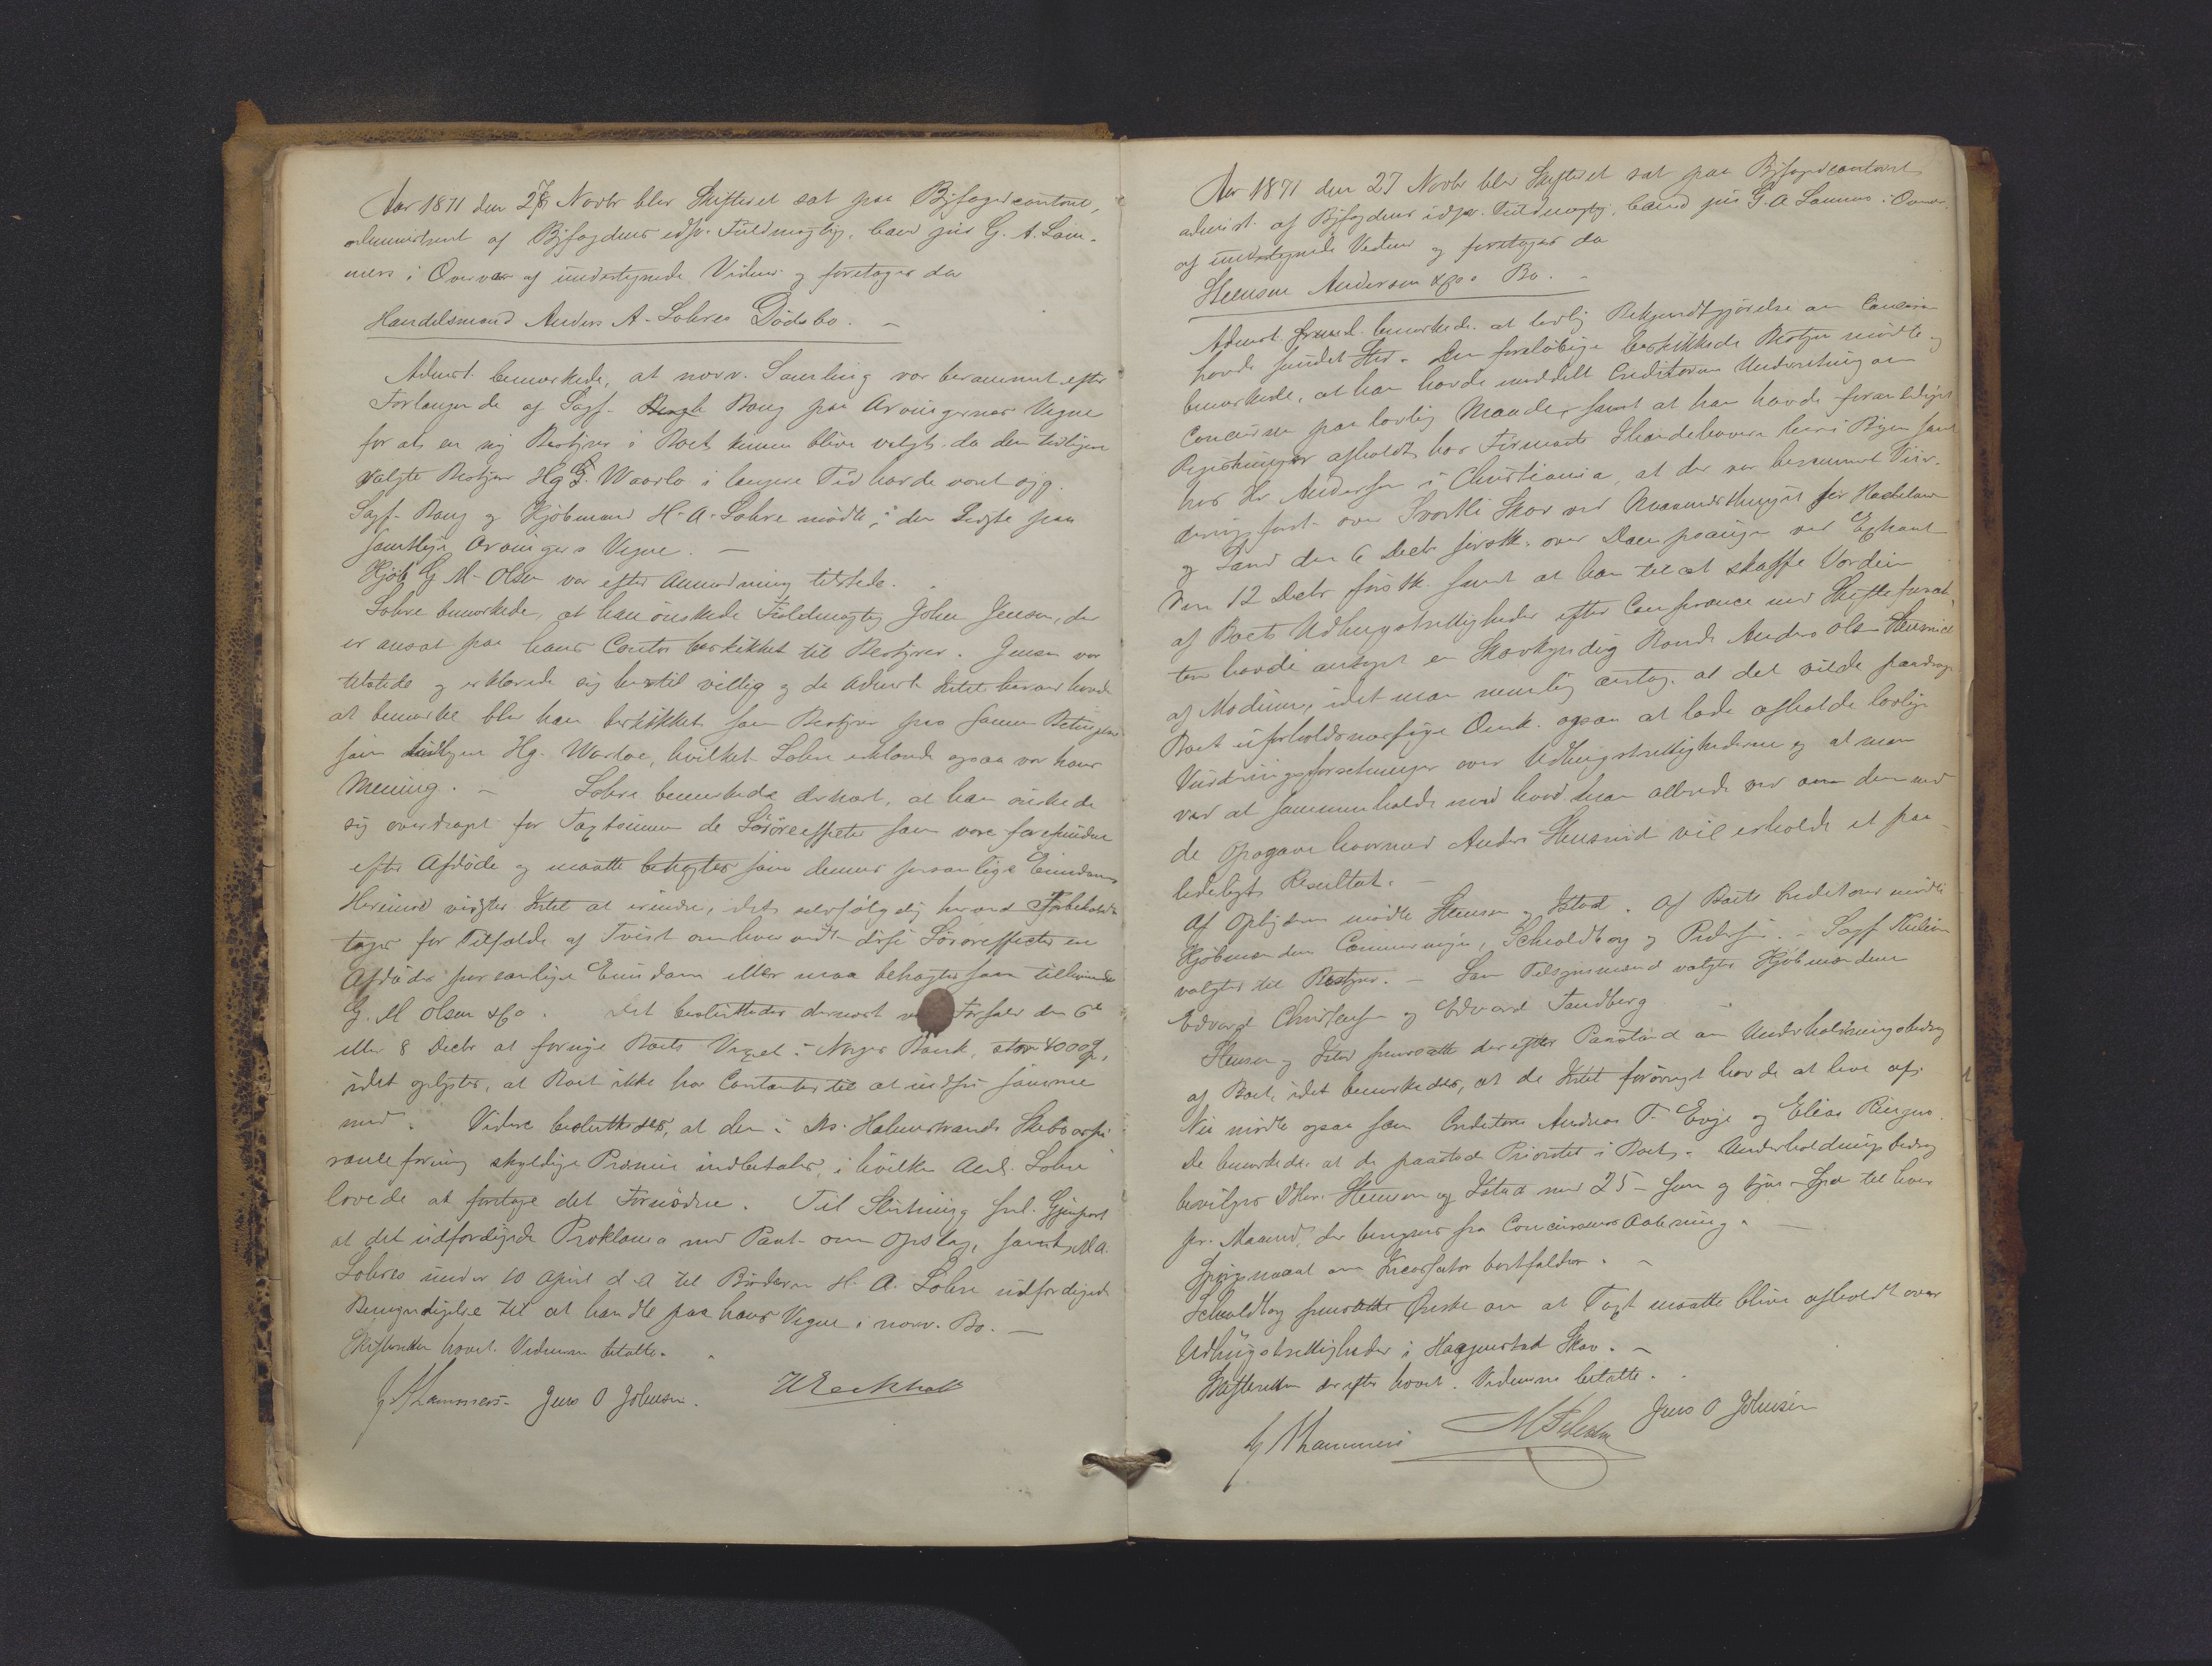 Aar 1871 den 27 Novbr blev Skifteret sat paa Byfogedcontoret,
administreret af Byfogdens edsv. Fuldmægtig, cand jur G. A. Lam-
mers i Overvær af undertegnede Vidner og foretoges da
Handelsmand Anders A. Sohres Dödsbo. —
Admst. bemærkede, at nærv. Samling var berammet efter
Forlangende af Sagf. Bang paa Arvingernes Vegne
for at en ny Bestyrer i Boet kunne blive valgt, da den tidligere
valgte Bestyrer Hg G. Waarlo i længere Tid havde været syg.
Sagf. Bang og Kjöbmand H. A. Sohre mödte, den Sidste paa
samtlige Arvingers Vegne. —
Kjöbm G. M. Olsen var efter Anmodning tilstede.
Sohre bemærkede, at han önskede Fuldmægtig John Jensen, der
er ansat paa hans Contor beskikket til Bestyrer. Jensen var
tilstede og erklærede sig hertil villig og da Admst. Intet herimod havde
at bemærke blev han beskikket som Bestyrer paa samme Betingelser
som tidligere Hg. Waarloe, hvilket Sohre erklærede ogsaa var hans
Mening. — Sohre bemærkede dernæst, at han önskede
sig overdraget for Taxtsummen de Lösöreeffecter som vare forefundne
efter Afdöde og maatte betragtes som dennes personlige Eiendom
Herimod vidstes Intet at erindre, idet selvfölgelig herved Forbehold
toges for Tilfælde af Tvist om hvorvidt disse Lösöreeffecter er
Afdödes personlige Eiendom eller maa betragtes som tilhörende
G. M Olsen & Co. Det besluttedes dernæst ved Forfald den 6te
eller 8 Decbr at fornye Boets Vexel i Norges Bank, stor 4000 Spd,
idet oplystes, at Boet ikke har Contanter til at indfri samme
med. Videre besluttedes, at den i Ds. Holmestrands Skibsassu-
ranceforening skyldige Præmie indbetales, i hvilken Anl. Sohre
lovede at foretage det Fornödne. Til Slutning freml. Gjenpart
af det udfærdigede Proklama med Paat. om Opslag, samt A.
Sohres under 10 April d. A til Broderen H. A. Sohre udfærdigede
Bemyndigelse til at handle paa hans Vegne i nærv. Bo. —
Skifteretten hævet. Vidnerne betalte.
G A Lammers Jens O Johnsen.
Aar 1871 den 27 Novbr blev Skifteret sat paa Byfogedcontoret
administ. af Byfogdens edsv. Fuldmægtig, cand jur G. A Lammers i Overvær
af undertegnede Vidner og foretoges da
Steensen Andersen & Co. Bo. —
Admst. bemærkede at lovlig Bekjendtgjörelse om Concursen
havde fundet Sted. Den forelöbige beskikkede Bestyrer mödte og
bemærkede, at han havde meddelt Creditorerne Underretning om
Concursen paa lovlig Maade, samt at han havde foranlediget
Registreringer afholdt hos Firmaets Ihændehavere her i Byen samt
hos Hr. Andersen i Christiania, at der var berammet Vur-
deringsforr. over Svartli Skov ved Maanedsthinget for Hadeland
og Land den 6 Decbr förstk. over ved
den 12 Decbr förstk. samt at han til at skaffe Værdien
af Boets Udhugstrettigheder efter Conference med Skifteforval-
teren havde antaget en Skovkyndig Bonde Anders Olsen
af Modum, idet man nemlig antog, at det vilde paadrage
Boet uforholdsmæssige Omk. ogsaa at lade afholde lovlige
Vurderingsforretninger over Udhugstrettighederne og at man
ved at sammenholde med hvad man allerede ved om dem med
de Opgave hvormed Anders vil erholde et paa-
lideligt Resultat. —
Af Opbyderne mödte Steensen og Ystad. Af Boets Creditorer mödte
Kjöbmændene Cammermeyer, Scheldborg og Pedersen. — Sagf.
valgtes til Bestyrer. — Som Tilsynsmænd valgtes Kjöbmændene
Edvard Christensen og Edvard Sandberg —
Steensen og Ystad fremsatte derefter Paastand om Underholdningsbidrag
af Boet, idet bemærkedes, at de Intet forövrigt havde at leve af.
Nu mödte ogsaa som Creditorer Andreas T. Evje og Elias Ringnes.
De bemærkede at de paastod Prioritet i Boet. Underholdningsbidrag
bevilges DHrr. Steensen og Ystad med 25 – fem og tyve – Spd til hver
pr. Maaned, der beregnes fra Concursens Aabning. —
Spörgsmaal om Incassator bortfalder. —
Scheldborg fremsatte Önske om at Taxt maatte blive afholdt over
Udhugstrettigheder i Skov. —
Skifteretten derefter hævet. Vidnerne betalte.
G A Lammers Jens O Johnsen